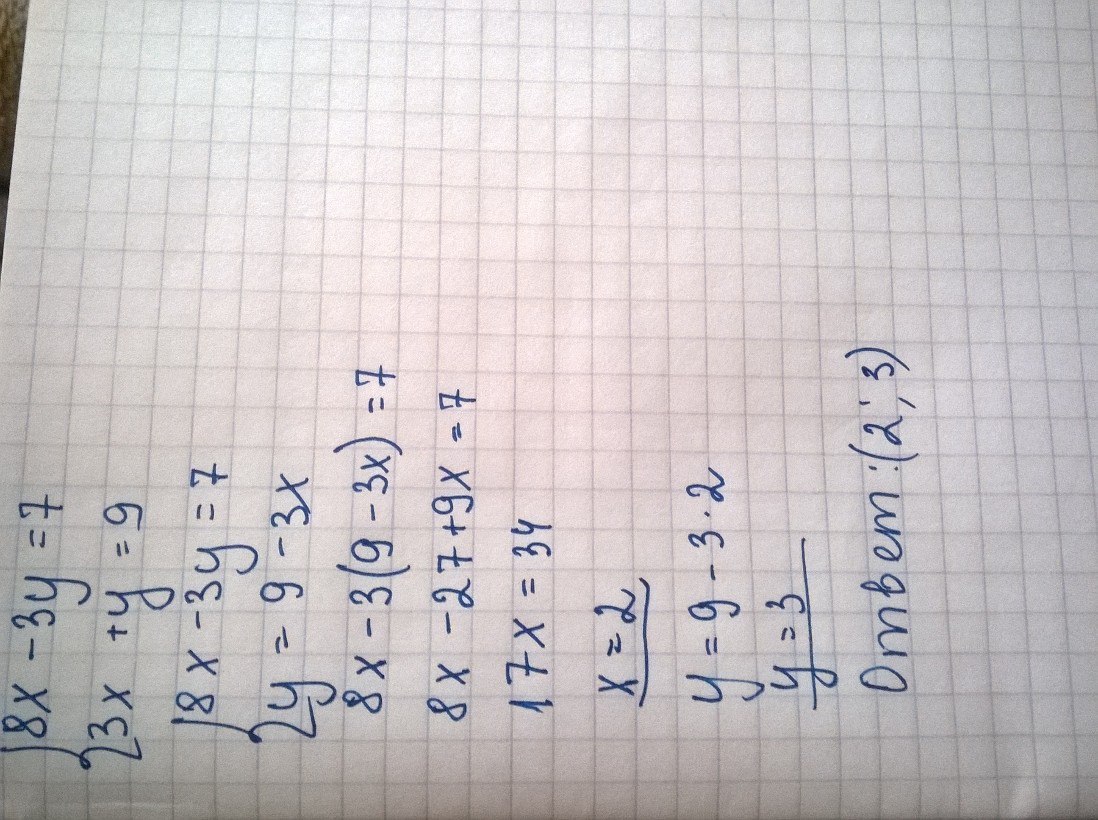 {8x - 3y = 7
{3x + y = 9
{8x - 3y = 7
{y = 9 - 3x
8x - 3(9 - 3x) = 7
8x - 27 + 9x = 7
17x = 34
x = 2
y = 9 - 3 · 2
y = 3
Ответ: (2; 3)